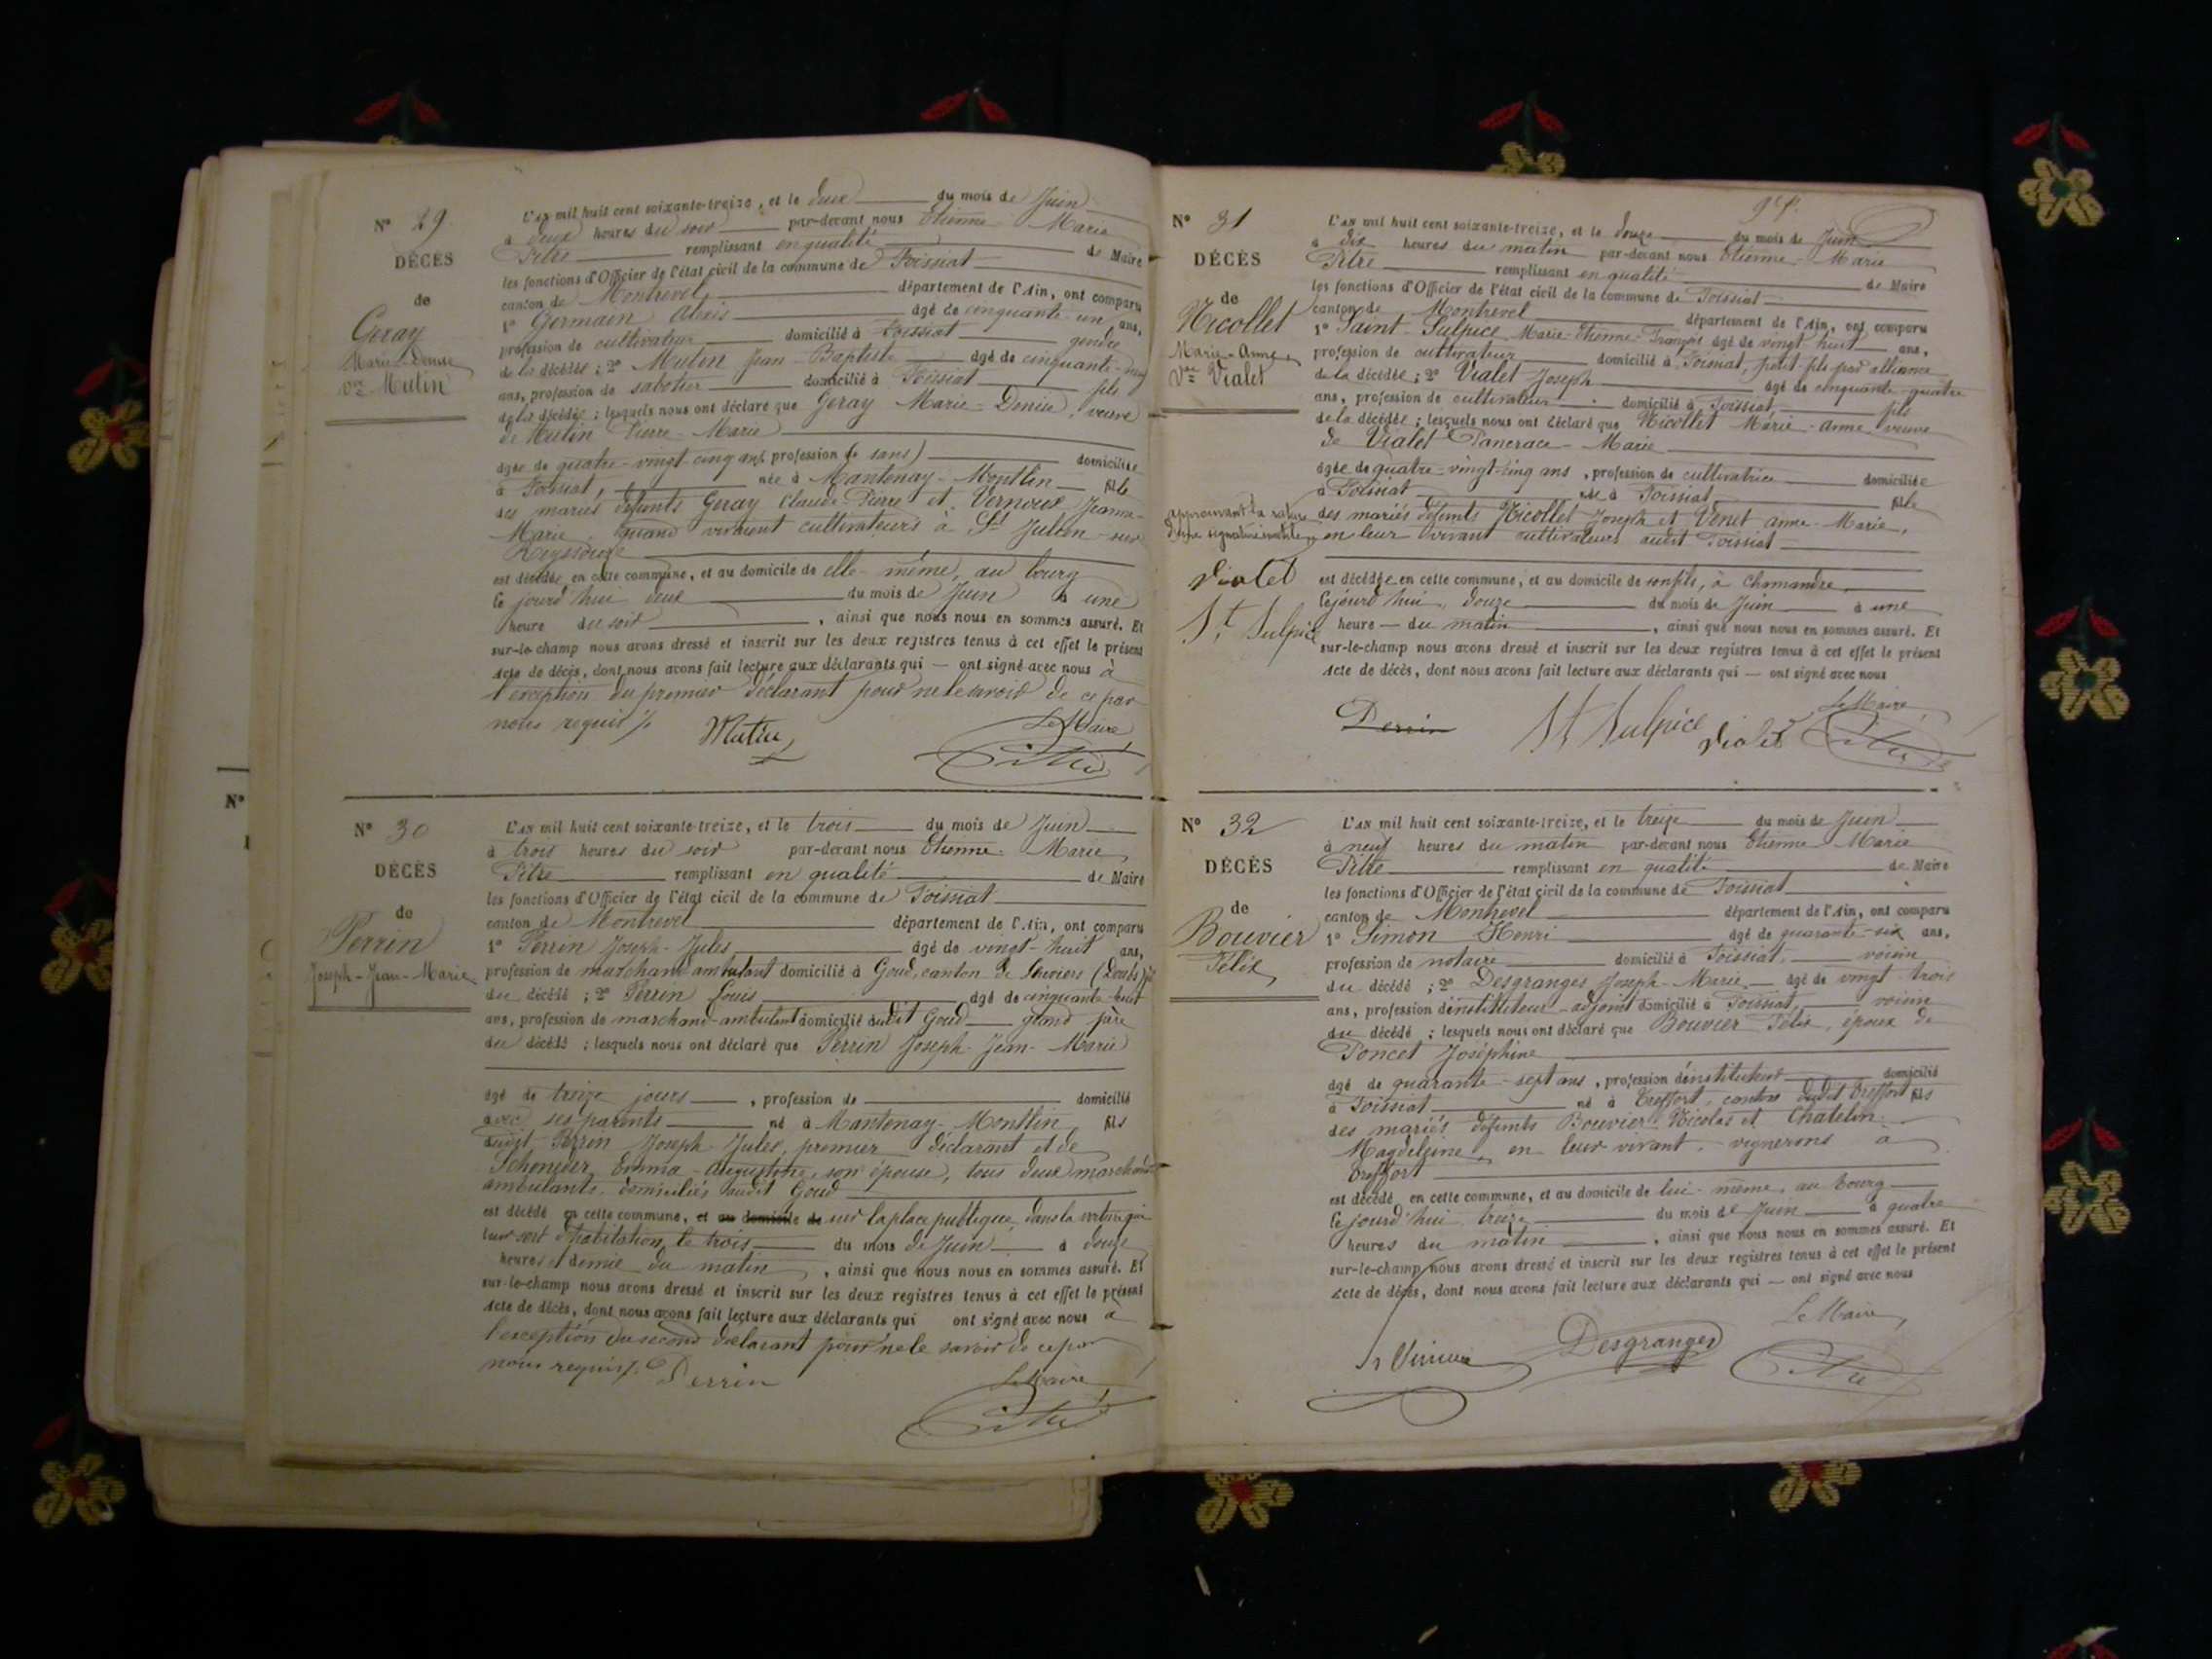 N° 29
DÉCÈS
de
Geray
Marie-Denise
Vve Mutin
L'AN mil huit cent soixante-treize, et le deux du mois de Juin
à deux heures du soir par-devant nous Etienne Marie
Pitre remplissant en qualité de Maire
les fonctions d'Officier de l'état civil de la commune de Foissiat
canton de Montrevel département de l'Ain, ont comparu
1° Germain Alexis âgé de cinquante-un ans,
profession de cultivateur domicilié à Foissiat gendre
de la décédée ; 2° Mutin Jean-Baptiste âgé de cinquante-cinq
ans, profession de sabotier domicilié à Foissiat fils
de la décédée ; lesquels nous ont déclaré que Geray Marie-Denise, veuve
de Mutin Pierre-Marie
âgée de quatre-vingt-cinq ans profession de (sans) domiciliée
à Foissiat, née à Mantenay-Montlin fille
des mariés défunts Geray Claude-Pierre et Vernoux Jeanne-
Marie, quand vivaient cultivateurs à St Julien-sur-
Reyssouze
est décédée en cette commune, et au domicile de elle-même, au bourg
le jourd'hui deux du mois de Juin à une
heure du soir, ainsi que nous nous en sommes assuré. Et
sur-le-champ nous avons dressé et inscrit sur les deux registres tenus à cet effet le présent
acte de décès, dont nous avons fait lecture aux déclarants qui — ont signé avec nous à
l'exception du premier déclarant pour ne le savoir de ce par
nous requis
Mutin
Le Maire
Pitre
N° 30
DÉCÈS
de
Perrin
Joseph-Jean-Marie
L'AN mil huit cent soixante-treize, et le trois du mois de Juin
à trois heures du soir par-devant nous Etienne Marie
Pitre remplissant en qualité de Maire
les fonctions d'Officier de l'état civil de la commune de Foissiat
canton de Montrevel département de l'Ain, ont comparu
1° Perrin Joseph-Jules âgé de vingt-huit ans,
profession de marchand ambulant domicilié à Goud, canton de (Doubs)
du décédé ; 2° Perrin Louis âgé de cinquante-huit
ans, profession de marchand-ambulant domicilié audit Goud grand père
du décédé ; lesquels nous ont déclaré que Perrin Joseph-Jean-Marie
âgé de treize jours, profession de domicilié
avec ses parents né à Mantenay-Montlin, fils
dudit Perrin Joseph-Jules, premier déclarant et de
Schneider Emma-Augustine, son épouse, tous deux marchands
ambulants, domiciliés audit Goud
est décédé en cette commune, et au domicile de sur la place publique, dans la voiture qui
leur sert d'habitation, le trois du mois de Juin à douze
heures et demie du matin, ainsi que nous nous en sommes assuré. Et
sur-le-champ nous avons dressé et inscrit sur les deux registres tenus à cet effet le présent
acte de décès, dont nous avons fait lecture aux déclarants qui ont signé avec nous à
l'exception du second déclarant pour ne le savoir de ce par
nous requis
Perrin
Le Maire
Pitre
N° 31
DÉCÈS
de
Nicollet
Marie-Anne,
Vve Vialet
L'AN mil huit cent soixante-treize, et le douze du mois de Juin
à dix heures du matin par-devant nous Etienne-Marie
Pitre remplissant en qualité de Maire
les fonctions d'Officier de l'état civil de la commune de Foissiat
canton de Montrevel département de l'Ain, ont comparu
1° Saint-Sulpice Marie-Etienne-François âgé de vingt huit ans,
profession de cultivateur domicilié à Foissiat, petit-fils par alliance
de la décédée ; 2° Vialet Joseph âgé de cinquante-quatre
ans, profession de cultivateur domicilié à Foissiat, fils
de la décédée ; lesquels nous ont déclaré que Nicollet Marie-anne veuve
de Vialet Pancrace-Marie
âgée de quatre-vingt-cinq ans, profession de cultivatrice domiciliée
à Foissiat née à Foissiat fille
des mariés défunts Nicollet Joseph et Venet anne-Marie,
en leur vivant cultivateurs audit Foissiat
approuvant la rature
d'une signature inutile
Vialet
St Sulpice
est décédée en cette commune, et au domicile de son fils, à Chamandre,
le jourd'hui, douze du mois de Juin à une
heure — du matin, ainsi que nous nous en sommes assuré. Et
sur-le-champ nous avons dressé et inscrit sur les deux registres tenus à cet effet le présent
acte de décès, dont nous avons fait lecture aux déclarants qui — ont signé avec nous
Perrin
St Sulpice
Vialet
Le Maire
Pitre
N° 32
DÉCÈS
de
Bouvier
Félix
L'AN mil huit cent soixante-treize, et le treize du mois de Juin
à neuf heures du matin par-devant nous Etienne Marie
Pitre remplissant en qualité de Maire
les fonctions d'Officier de l'état civil de la commune de Foissiat
canton de Montrevel département de l'Ain, ont comparu
1° Simon Henri âgé de quarante-six ans,
profession de notaire domicilié à Foissiat, voisin
du décédé ; 2° Desgranges Joseph-Marie âgé de vingt trois
ans, profession d'instituteur-adjoint domicilié à Foissiat voisin
du décédé ; lesquels nous ont déclaré que Bouvier Félix, époux de
Poncet Joséphine
âgé de quarante-sept ans, profession d'instituteur domicilié
à Foissiat né à Treffort, canton dudit Treffort fils
des mariés défunts Bouvier Nicolas et Chatelin
Magdeleine, en leur vivant vignerons à
Treffort
est décédé en cette commune, et au domicile de lui-même, au bourg
le jourd'hui treize du mois de Juin à quatre
heures du matin, ainsi que nous nous en sommes assuré. Et
sur-le-champ nous avons dressé et inscrit sur les deux registres tenus à cet effet le présent
acte de décès, dont nous avons fait lecture aux déclarants qui — ont signé avec nous
Desgranges
Le Maire,
Pitre